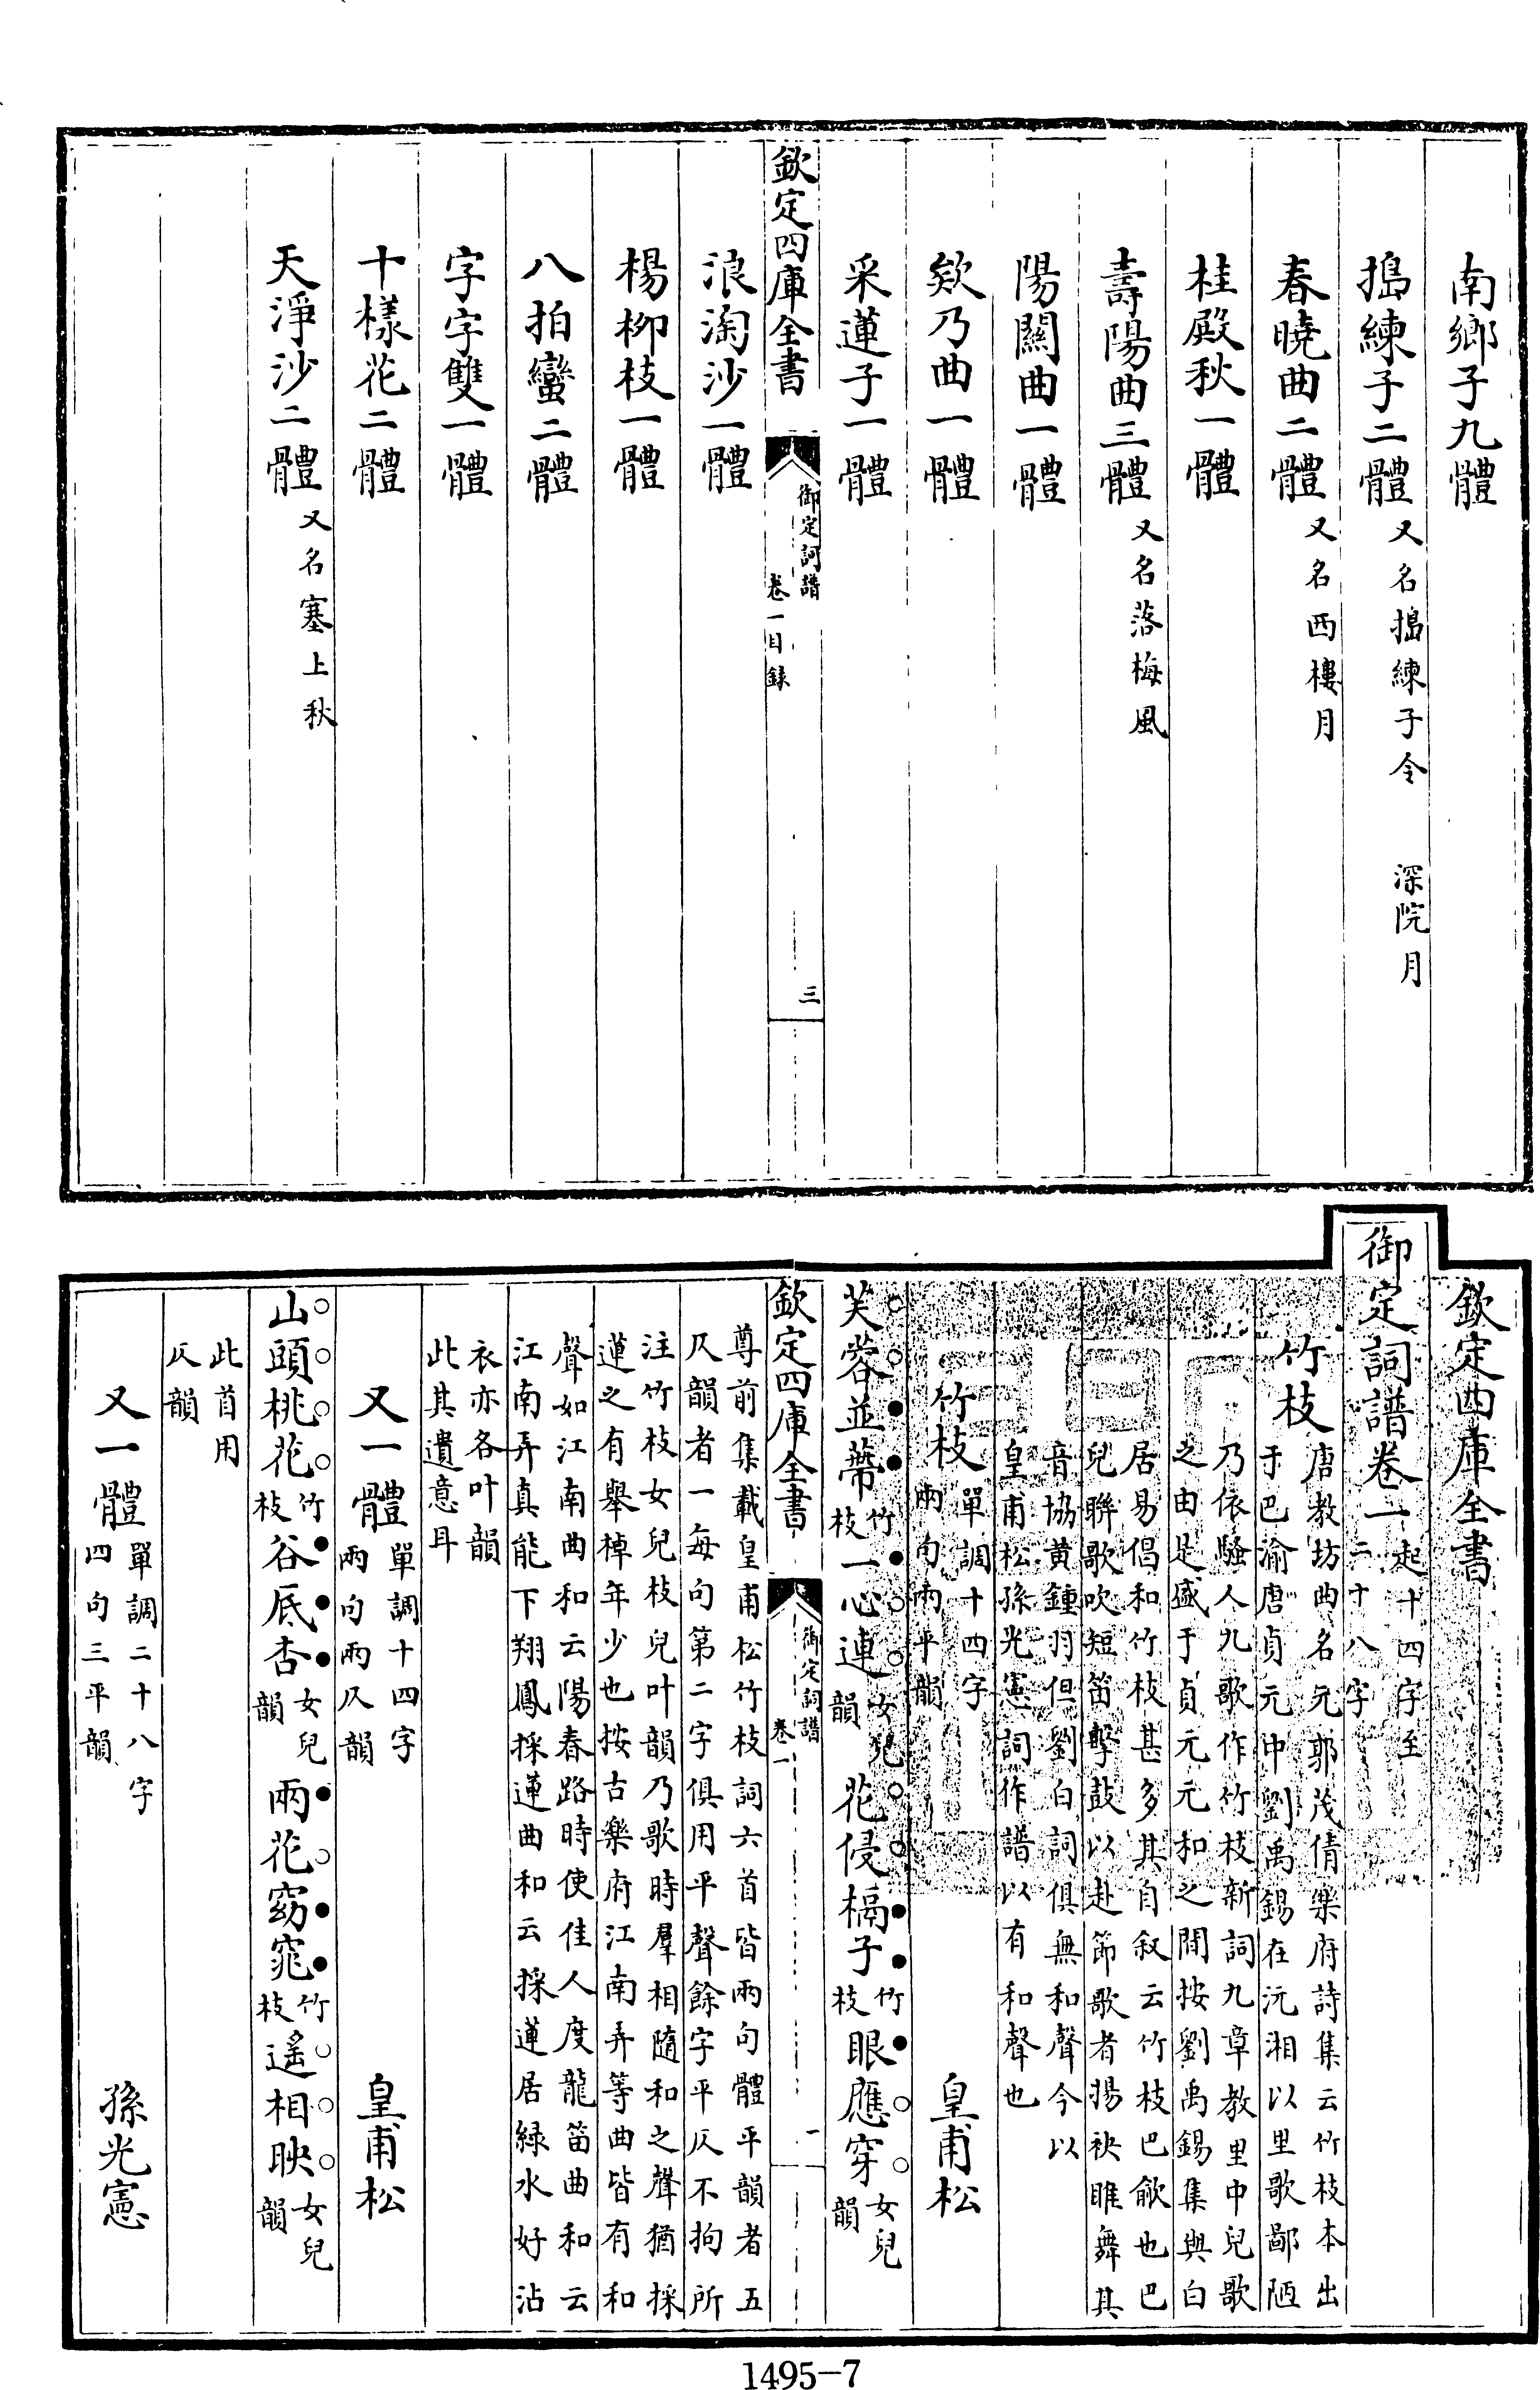 南鄉子九體
搗練子二體 又名搗練子令 深院月
春曉曲二體 又名西樓月
桂殿秋一體
壽陽曲三體 又名落梅風
陽關曲一體
欸乃曲一體
采蓮子一體
欽定四庫全書 御定詞譜 卷一目錄 三
浪淘沙一體
楊柳枝一體
八拍蠻二體
字字雙一體
十樣花二體
天淨沙二體 又名塞上秋
欽定四庫全書
御定詞譜卷一 起十四字至
二十八字
竹枝 唐教坊曲名元郭茂倩樂府詩集云竹枝本出
于巴渝唐貞元中劉禹錫在沅湘以里歌鄙陋
乃依騷人九歌作竹枝新詞九章教里中兒歌
之由是盛于貞元元和之間按劉禹錫集與白
居易倡和竹枝甚多其自叙云竹枝巴歈也巴
兒聯歌吹短笛擊鼓以赴節歌者揚袂睢舞其
音協黃鍾羽但劉白詞俱無和聲今以
皇甫松孫光憲詞作譜以有和聲也
竹枝 單調十四字
兩句兩平韻 皇甫松
芙蓉並蔕竹枝一心連女兒韻 花侵槅子竹枝眼應穿女兒韻
欽定四庫全書 御定詞譜 卷一 一
尊前集載皇甫松竹枝詞六首皆兩句體平韻者五
仄韻者一每句第二字俱用平聲餘字平仄不拘所
注竹枝女兒枝兒叶韻乃歌時羣相隨和之聲猶採
蓮之有舉棹年少也按古樂府江南弄等曲皆有和
聲如江南曲和云陽春路時使佳人度龍笛曲和云
江南弄真能下翔鳳採蓮曲和云採蓮居綠水好沾
衣亦各叶韻
此其遺意耳
又一體 單調十四字
兩句兩仄韻 皇甫松
山頭桃花竹枝谷底杏女兒韻 兩花窈窕竹枝遙相映女兒韻
此首用
仄韻
又一體 單調二十八字
四句三平韻 孫光憲
1495-7